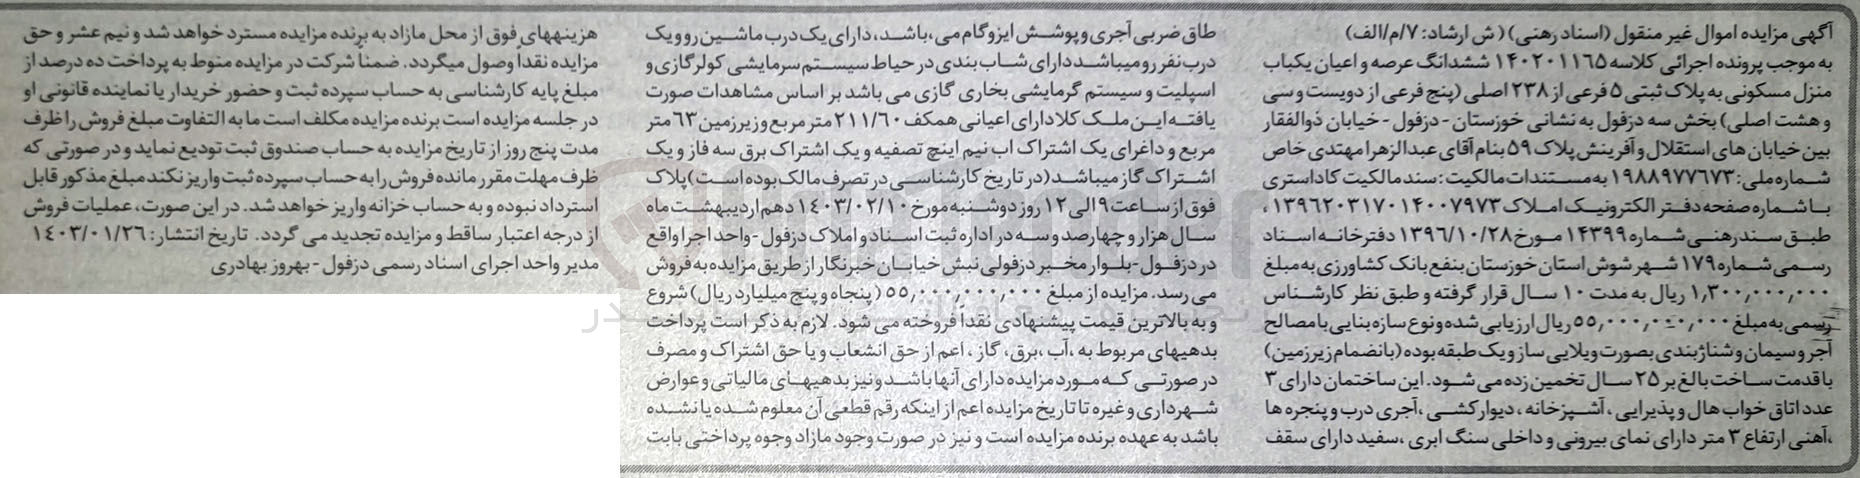 آگهی مزایده اموال غیر منقول (اسناد رهنی) ( ش ارشاد: ۷/م/الف)
به موجب پرونده اجرائی کلاسه ۱۴۰۲۰۱۱۶۵ ششدانگ عرصه و اعیان یکباب
منزل مسکونی به پلاک ثبتی ۵ فرعی از ۲۳۸ اصلی (پنج فرعی از دویست و سی
و هشت اصلی) بخش سه دزفول به نشانی خوزستان - دزفول - خیابان ذوالفقار
بین خیابان های استقلال و آفرینش پلاک ۵۹ بنام آقای عبدالزهرا مهتدی خاص
شماره ملی: ۱۹۸۸۹۷۷۶۷۳ به مستندات مالکیت : سند مالکیت کاداستری
با شماره صفحه دفتر الکترونیک املاک ۱۳۹۶۲۰۳۱۷۰۱۴۰۰۷۹۷۳ ،
طبق سند رهنی شماره ۱۴۳۹۹ مورخ ۱۳۹۶/۱۰/۲۸ دفترخانه اسناد
رسمی شماره ۱۷۹ شهر شوش استان خوزستان بنفع بانک کشاورزی به مبلغ
۱,۳۰۰,۰۰۰,۰۰۰ ریال به مدت ۱۰ سال قرار گرفته و طبق نظر کارشناس
رسمی به مبلغ ۵۵,۰۰۰,۰۰۰,۰۰۰ ریال ارزیابی شده و نوع سازه بنایی با مصالح
آجر و سیمان و شناژبندی بصورت ویلایی ساز و یک طبقه بوده (بانضمام زیرزمین)
با قدمت ساخت بالغ بر ۲۵ سال تخمین زده می شود. این ساختمان دارای ۳
عدد اتاق خواب هال و پذیرایی ، آشپزخانه ، دیوارکشی ، آجری درب و پنجره ها
،آهنی ارتفاع ۳ متر دارای نمای بیرونی و داخلی سنگ ابری ،سفید دارای سقف
طاق ضربی آجری و پوشش ایزوگام می،باشد، دارای یک درب ماشین رو و یک
درب نفر رو میباشد دارای شاب بندی در حیاط سیستم سرمایشی کولر گازی و
اسپلیت و سیستم گرمایشی بخاری گازی می باشد بر اساس مشاهدات صورت
یافته این ملک کلا دارای اعیانی همکف ۲۱۱/۶۰ متر مربع و زیر زمین ۶۳ متر
مربع و داغرای یک اشتراک اب نیم اینچ تصفیه و یک اشتراک برق سه فاز و یک
اشتراک گاز میباشد (در تاریخ کارشناسی در تصرف مالک بوده است) پلاک
فوق از ساعت ۹ الی ۱۲ روز دوشنبه مورخ ۱۴۰۳/۰۲/۱۰ دهم اردیبهشت ماه
سال هزار و چهارصد و سه در اداره ثبت اسناد و املاک دزفول - واحد اجرا واقع
در دزفول - بلوار مخبر دزفولی نبش خیابان خبرنگار از طریق مزایده به فروش
می رسد. مزایده از مبلغ ۵۵,۰۰۰,۰۰۰,۰۰۰ ( پنجاه و پنج میلیارد ریال) شروع
و به بالاترین قیمت پیشنهادی نقداً فروخته می شود. لازم به ذکر است پرداخت
بدهیهای مربوط به ،آب ،برق، گاز ، اعم از حق انشعاب و یا حق اشتراک و مصرف
در صورتی که مورد مزایده دارای آنها باشد و نیز بدهیهای مالیاتی و عوارض
شهرداری و غیره تا تاریخ مزایده اعم از اینکه رقم قطعی آن معلوم شده یا نشده
باشد به عهده برنده مزایده است و نیز در صورت وجود مازاد وجوه پرداختی بابت
هزینههای فوق از محل مازاد به برنده مزایده مسترد خواهد شد و نیم عشر و حق
مزایده نقداً وصول میگردد. ضمناً شرکت در مزایده منوط به پرداخت ده درصد از
مبلغ پایه کارشناسی به حساب سپرده ثبت و حضور خریدار یا نماینده قانونی او
در جلسه مزایده است برنده مزایده مکلف است ما به التفاوت مبلغ فروش را ظرف
مدت پنج روز از تاریخ مزایده به حساب صندوق ثبت تودیع نماید و در صورتی که
ظرف مهلت مقرر مانده فروش را به حساب سپرده ثبت واریز نکند مبلغ مذکور قابل
استرداد نبوده و به حساب خزانه واریز خواهد شد. در این صورت، عملیات فروش
از درجه اعتبار ساقط و مزایده تجدید می گردد. تاریخ انتشار: ۱۴۰۳/۰۱/۲۶
مدیر واحد اجرای اسناد رسمی دزفول - بهروز بهادری